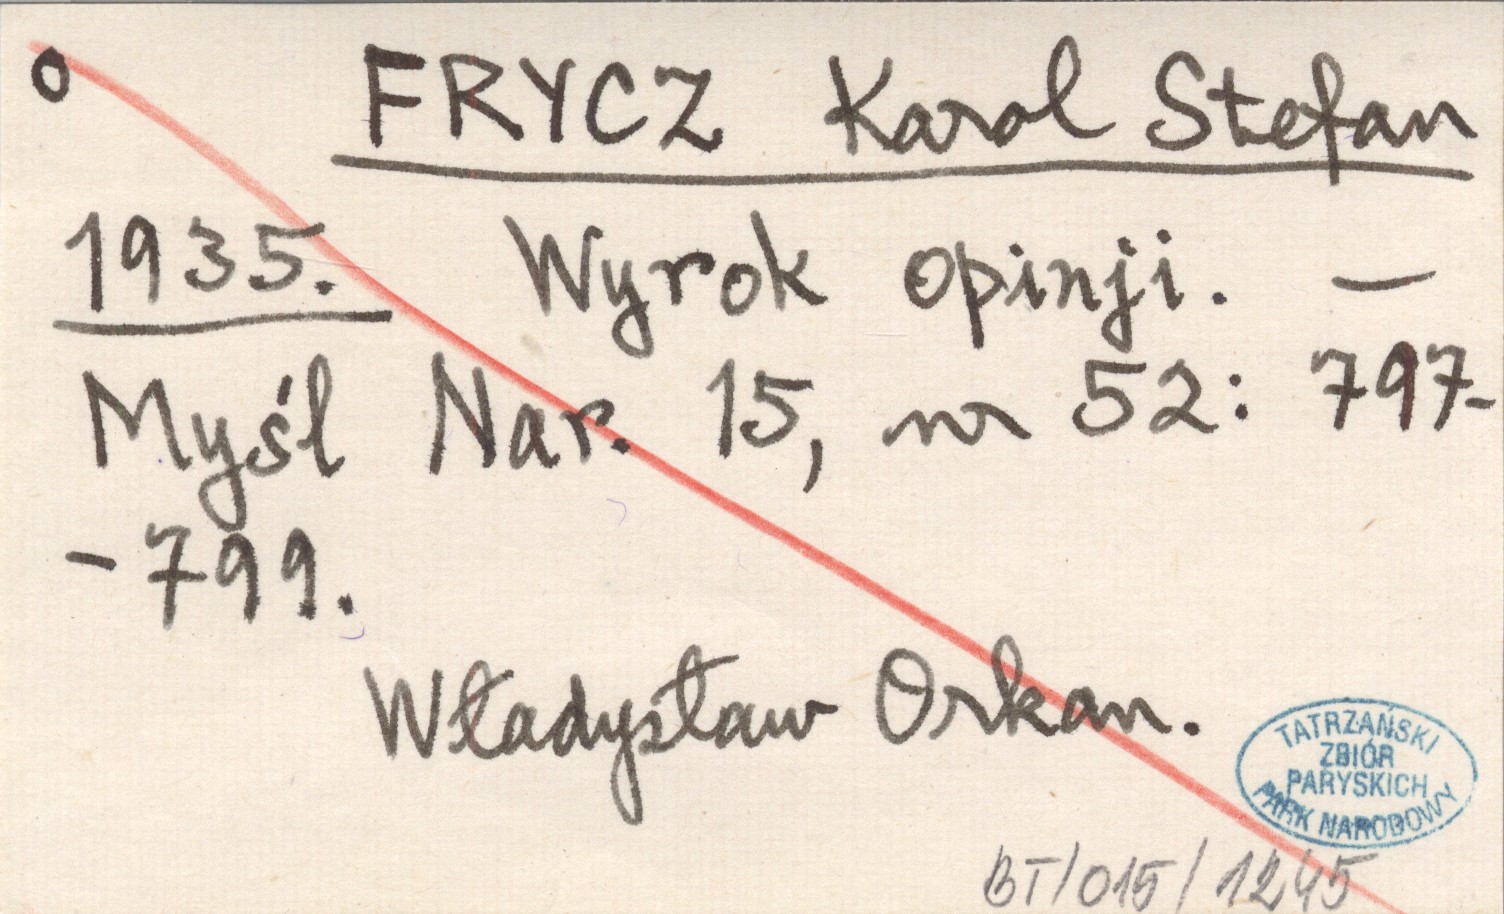 o FRYCZ Karol Stefan
1935. Wyrok opinji. —
Myśl Nar. 15, nr 52: 797-
-799.
Władysław Orkan.
TATRZAŃSKI
ZBIÓR
PARYSKICH
PARK NARODOWY
BT/015/1245